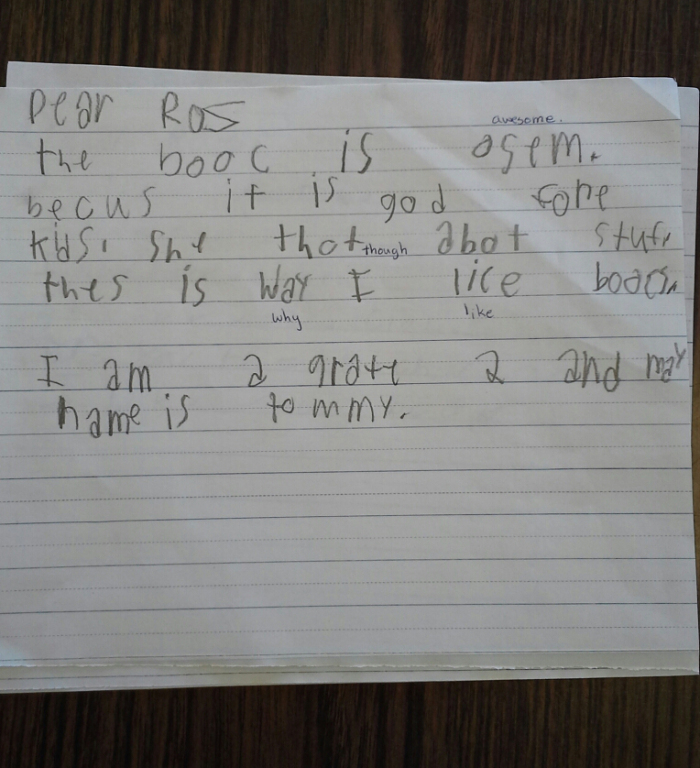 Dear Ros
awesome.
the booc is osem.
becus it is god fore
kids. she thot though abot stuf.
thes is way I lice boocs.
why like
I am a grate 2 and may
name is tommy.